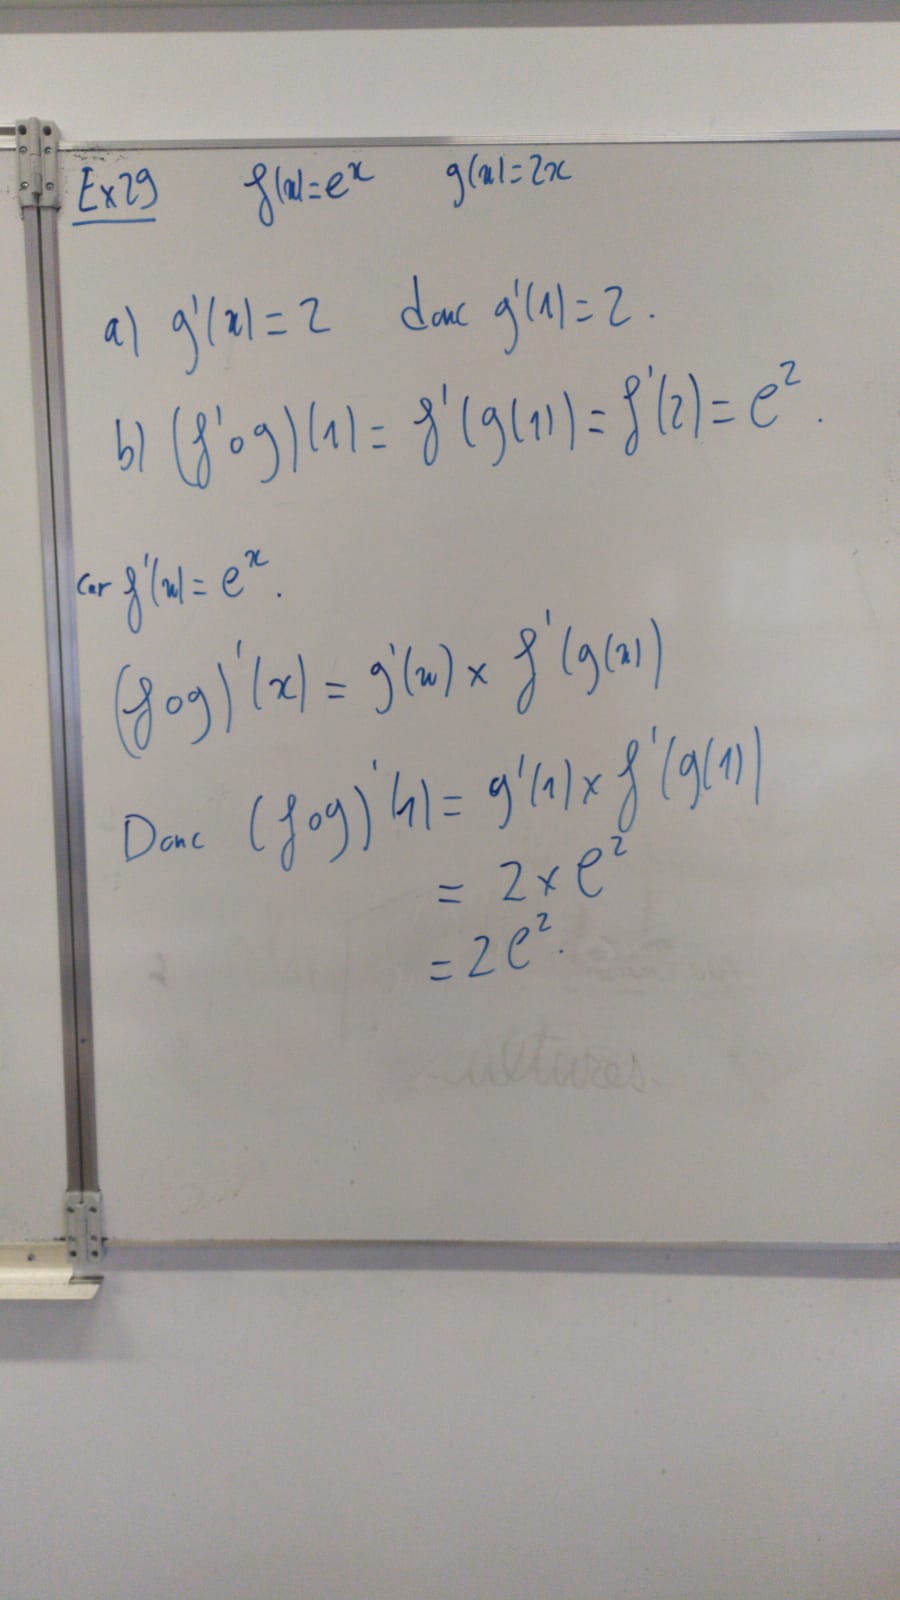 Ex29 f(x)=eˣ g(x)=2x
a) g'(x)=2 donc g'(1)=2.
b) (f'og)(1)= f'(g(1))= f'(2)= e².
car f'(x)= eˣ.
(fog)'(x) = g'(x) × f'(g(x))
Donc (fog)'(1)= g'(1)× f'(g(1))
= 2×e²
= 2e².